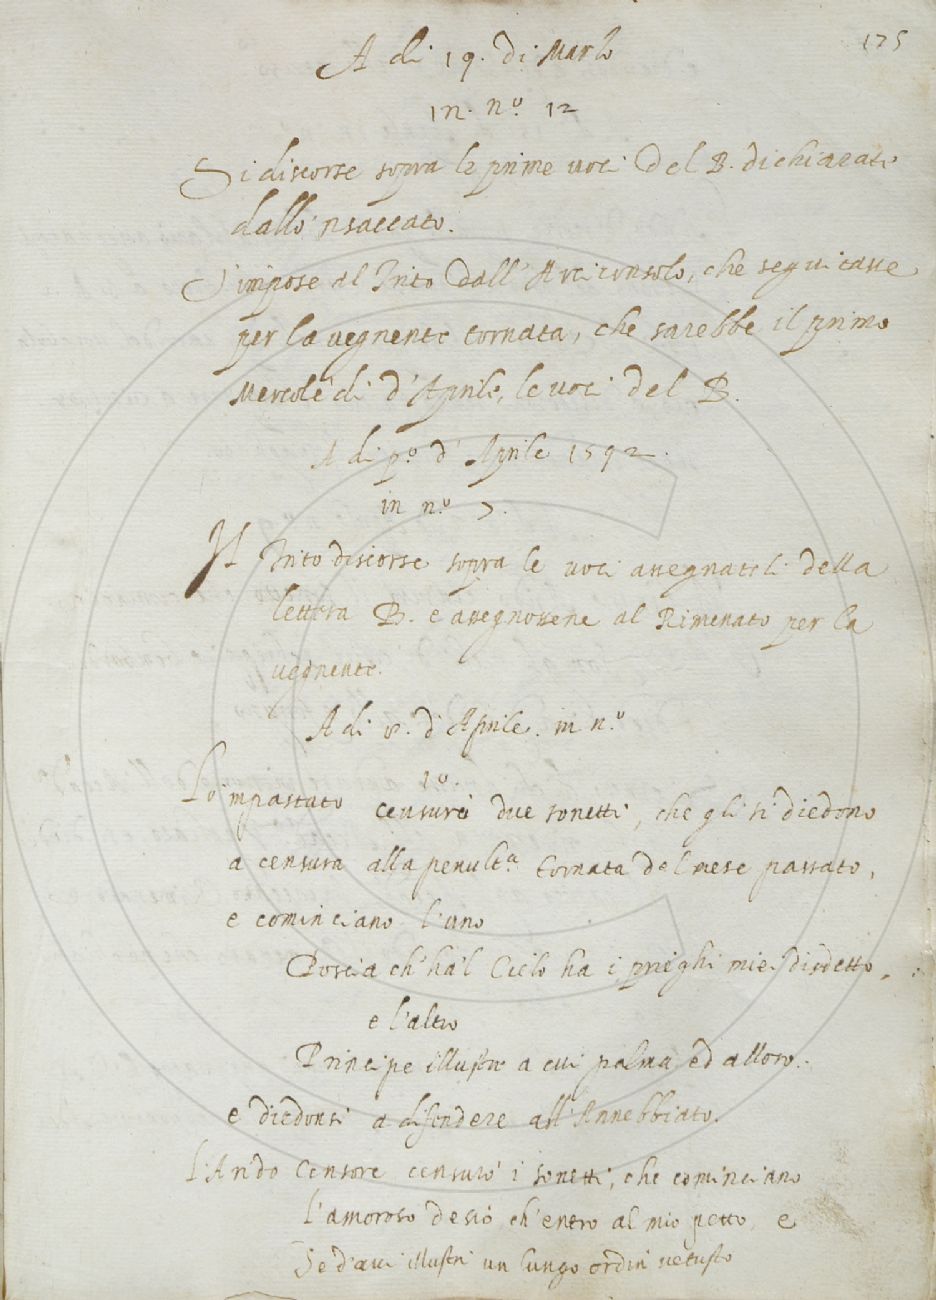 175
A di 19. di Marzo
in. n.º 12
Si discorse sopra le prime uoci del B. dichiarate
dallo 'nsaccato.
S'impose al Trito dall'Arciconsolo, che seguitasse
per la uegnente tornata, che sarebbe il primo
Mercoledi d'Aprile, le uoci del B.
A di p.º d'Aprile 1592.
in n.º 7.
Il Trito discorse sopra le uoci assegnateli della
lettera B. e assegnossene al Rimenato per la
uegnente.
A di 8. d'Aprile. in n.º
10.
Lo 'mpastato censurò due sonetti, che gli si diedono
a censura alla penult.ª tornata del mese passato,
e cominciano l'uno
Poscia ch'ha'l Cielo ha i prieghi miei disdetto,
e l'altro
Principe illustre a cui palma, ed alloro.
e diedonsi a difendere all'Annebbiato.
L'Arido Censore censurò i sonetti, che cominciano
L'amoroso desio, ch'entro al mio petto, e
Se d'aui illustri un lungo ordin uetusto